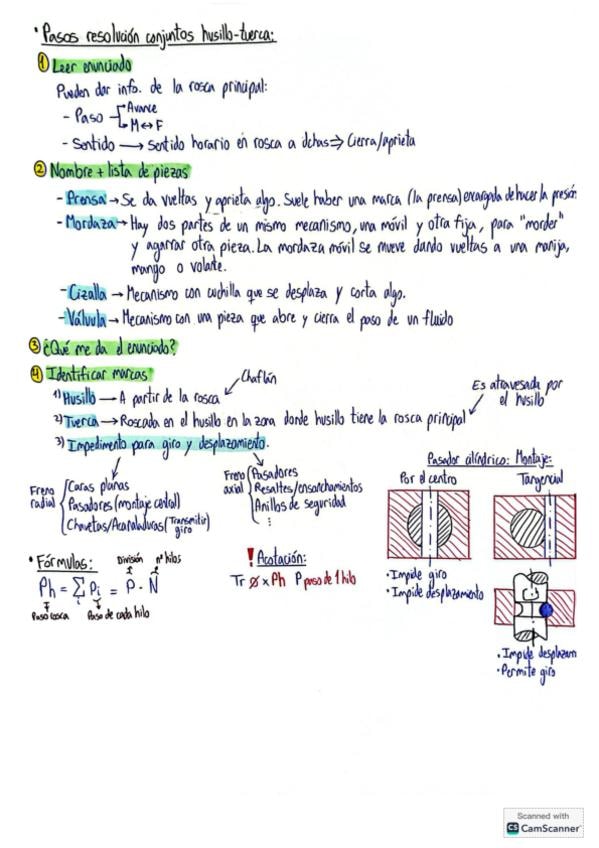 · Pasos resolución conjuntos husillo-tuerca:
① Leer enunciado
Pueden dar info. de la rosca principal:
- Paso Avance
M↔F
- Sentido → Sentido horario en rosca a dchas ⇒ Cierra/aprieta
② Nombre + lista de piezas
- Prensa → Se da vueltas y aprieta algo. Suele haber una marca (la prensa) encargada de hacer la presión
- Mordaza → Hay dos partes de un mismo mecanismo, una móvil y otra fija, para "morder"
y agarrar otra pieza. La mordaza móvil se mueve dando vueltas a una manija,
mango o volante.
- Cizalla → Mecanismo con cuchilla que se desplaza y corta algo.
- Válvula → Mecanismo con una pieza que abre y cierra el paso de un fluido
③ ¿Qué me da el enunciado?
④ Identificar marcas
Chaflán
1) Husillo → A partir de la rosca
Es atravesada por
el husillo
2) Tuerca → Roscada en el husillo en la zona donde husillo tiene la rosca principal
3) Impedimento para giro y desplazamiento.
Freno radial
Caras planas
Pasadores (montaje central)
Chavetas/Acanaladuras (Transmitir giro)
Freno axial
Pasadores
Resaltes/ensanchamientos
Anillos de seguridad
⋮
Pasador cilíndrico: Montaje:
Por el centro
Tangencial
· Impide giro
· Impide desplazamiento
· Impide desplazam
· Permite giro
· Fórmulas:
División nº hilos
Ph = Σ Pi = P · N
i
Paso rosca Paso de cada hilo
! Acotación:
Tr ∅ x Ph P paso de 1 hilo
Scanned with
CS CamScanner